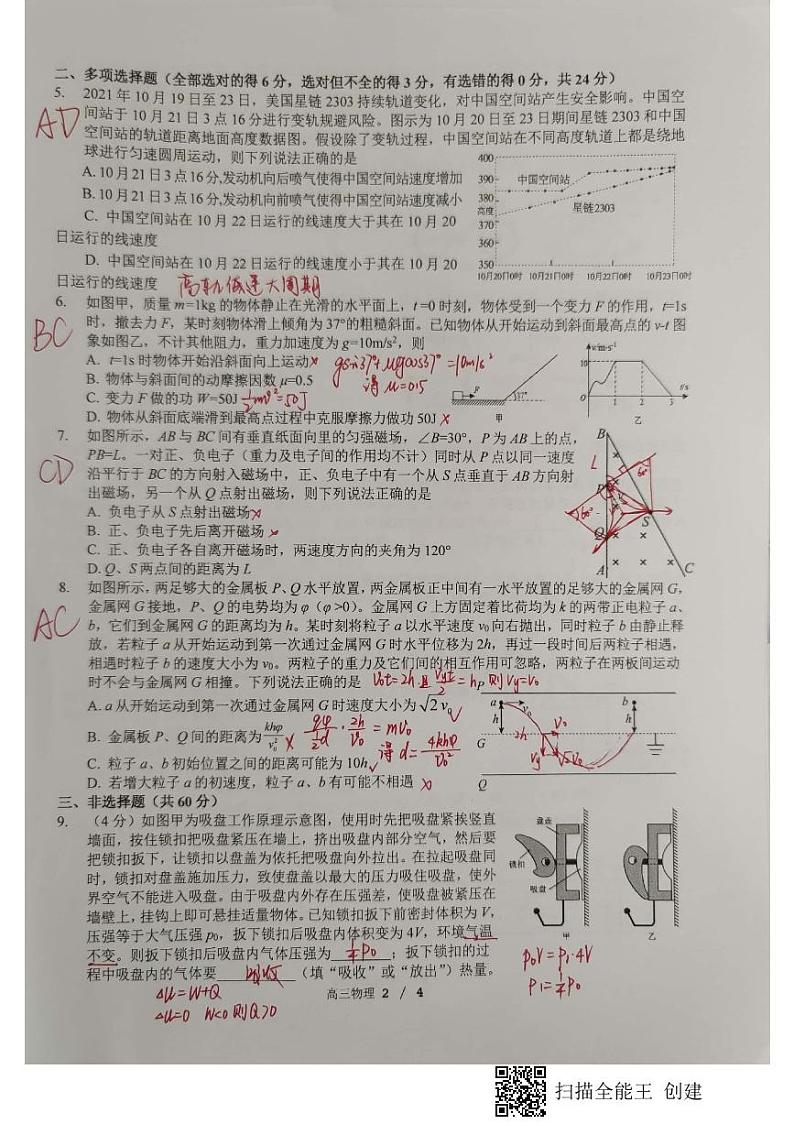 二、多项选择题（全部选对的得 6 分，选对但不全的得 3 分，有选错的得 0 分，共 24 分）
5. 2021 年 10 月 19 日至 23 日，美国星链 2303 持续轨道变化，对中国空间站产生安全影响。中国空
AD
间站于 10 月 21 日 3 点 16 分进行变轨规避风险。图示为 10 月 20 日至 23 日期间星链 2303 和中国
空间站的轨道距离地面高度数据图。假设除了变轨过程，中国空间站在不同高度轨道上都是绕地
球进行匀速圆周运动，则下列说法正确的是
A. 10 月 21 日 3 点 16 分,发动机向后喷气使得中国空间站速度增加
B. 10 月 21 日 3 点 16 分,发动机向前喷气使得中国空间站速度减小
C. 中国空间站在 10 月 22 日运行的线速度大于其在 10 月 20
日运行的线速度
D. 中国空间站在 10 月 22 日运行的线速度小于其在 10 月 20
日运行的线速度 高轨低速大周期
400
390
380
高度
370
360
350
中国空间站
星链2303
10月20日0时 10月21日0时 10月22日0时 10月23日0时
6. 如图甲，质量 m=1kg 的物体静止在光滑的水平面上，t =0 时刻，物体受到一个变力 F 的作用，t=1s
BC
时，撤去力 F，某时刻物体滑上倾角为 37°的粗糙斜面。已知物体从开始运动到斜面最高点的 v-t 图
象如图乙，不计其他阻力，重力加速度为 g=10m/s²，则
A. t=1s 时物体开始沿斜面向上运动× gsin37°+μgcos37°=10m/s²
B. 物体与斜面间的动摩擦因数 μ=0.5 得 μ=0.5
C. 变力 F 做的功 W=50J ½mv²=50J
D. 物体从斜面底端滑到最高点过程中克服摩擦力做功 50J ×
F
37°
甲
v/m·s⁻¹
10
0 1 2 3 t/s
乙
7. 如图所示，AB 与 BC 间有垂直纸面向里的匀强磁场，∠B=30°，P 为 AB 上的点，
CD
PB=L。一对正、负电子（重力及电子间的作用均不计）同时从 P 点以同一速度
沿平行于 BC 的方向射入磁场中，正、负电子中有一个从 S 点垂直于 AB 方向射
出磁场，另一个从 Q 点射出磁场，则下列说法正确的是
A. 负电子从 S 点射出磁场×
B. 正、负电子先后离开磁场 ×
C. 正、负电子各自离开磁场时，两速度方向的夹角为 120°
D. Q、S 两点间的距离为 L
B
L
60°
P
60°
S
Q
A
C
8. 如图所示，两足够大的金属板 P、Q 水平放置，两金属板正中间有一水平放置的足够大的金属网 G，
AC
金属网 G 接地，P、Q 的电势均为 φ（φ >0）。金属网 G 上方固定着比荷均为 k 的两带正电粒子 a、
b，它们到金属网 G 的距离均为 h。某时刻将粒子 a 以水平速度 v₀ 向右抛出，同时粒子 b 由静止释
放，若粒子 a 从开始运动到第一次通过金属网 G 时水平位移为 2h，再过一段时间后两粒子相遇，
相遇时粒子 b 的速度大小为 v₀。两粒子的重力及它们间的相互作用可忽略，两粒子在两板间运动
时不会与金属网 G 相撞。下列说法正确的是 v₀t=2h 且 vyt/2=h 则 vy=v₀
A. a 从开始运动到第一次通过金属网 G 时速度大小为 √2 v₀ √
B. 金属板 P、Q 间的距离为 khφ/v₀² × qφ/(½d)·2h/v₀=mv₀
得 d=4khφ/v₀²
C. 粒子 a、b 初始位置之间的距离可能为 10h √
D. 若增大粒子 a 的初速度，粒子 a、b 有可能不相遇 ×
P
a v₀ b
h h
2h v₀
G
vy √2v₀
Q
三、非选择题（共 60 分）
9. （4 分）如图甲为吸盘工作原理示意图，使用时先把吸盘紧挨竖直
墙面，按住锁扣把吸盘紧压在墙上，挤出吸盘内部分空气，然后要
把锁扣扳下，让锁扣以盘盖为依托把吸盘向外拉出。在拉起吸盘同
时，锁扣对盘盖施加压力，致使盘盖以最大的压力吸住吸盘，使外
界空气不能进入吸盘。由于吸盘内外存在压强差，使吸盘被紧压在
墙壁上，挂钩上即可悬挂适量物体。已知锁扣扳下前密封体积为 V，
压强等于大气压强 p₀，扳下锁扣后吸盘内体积变为 4V，环境气温
不变。则扳下锁扣后吸盘内气体压强为 ¼p₀ ；扳下锁扣的过
程中吸盘内的气体要 吸收 （填“吸收”或“放出”）热量。
ΔU=W+Q
ΔU=0 W<0 则Q>0
盘盖
锁扣
吸盘
甲
乙
p₀V=p₁·4V
p₁=¼p₀
高三物理 2 / 4
扫描全能王 创建